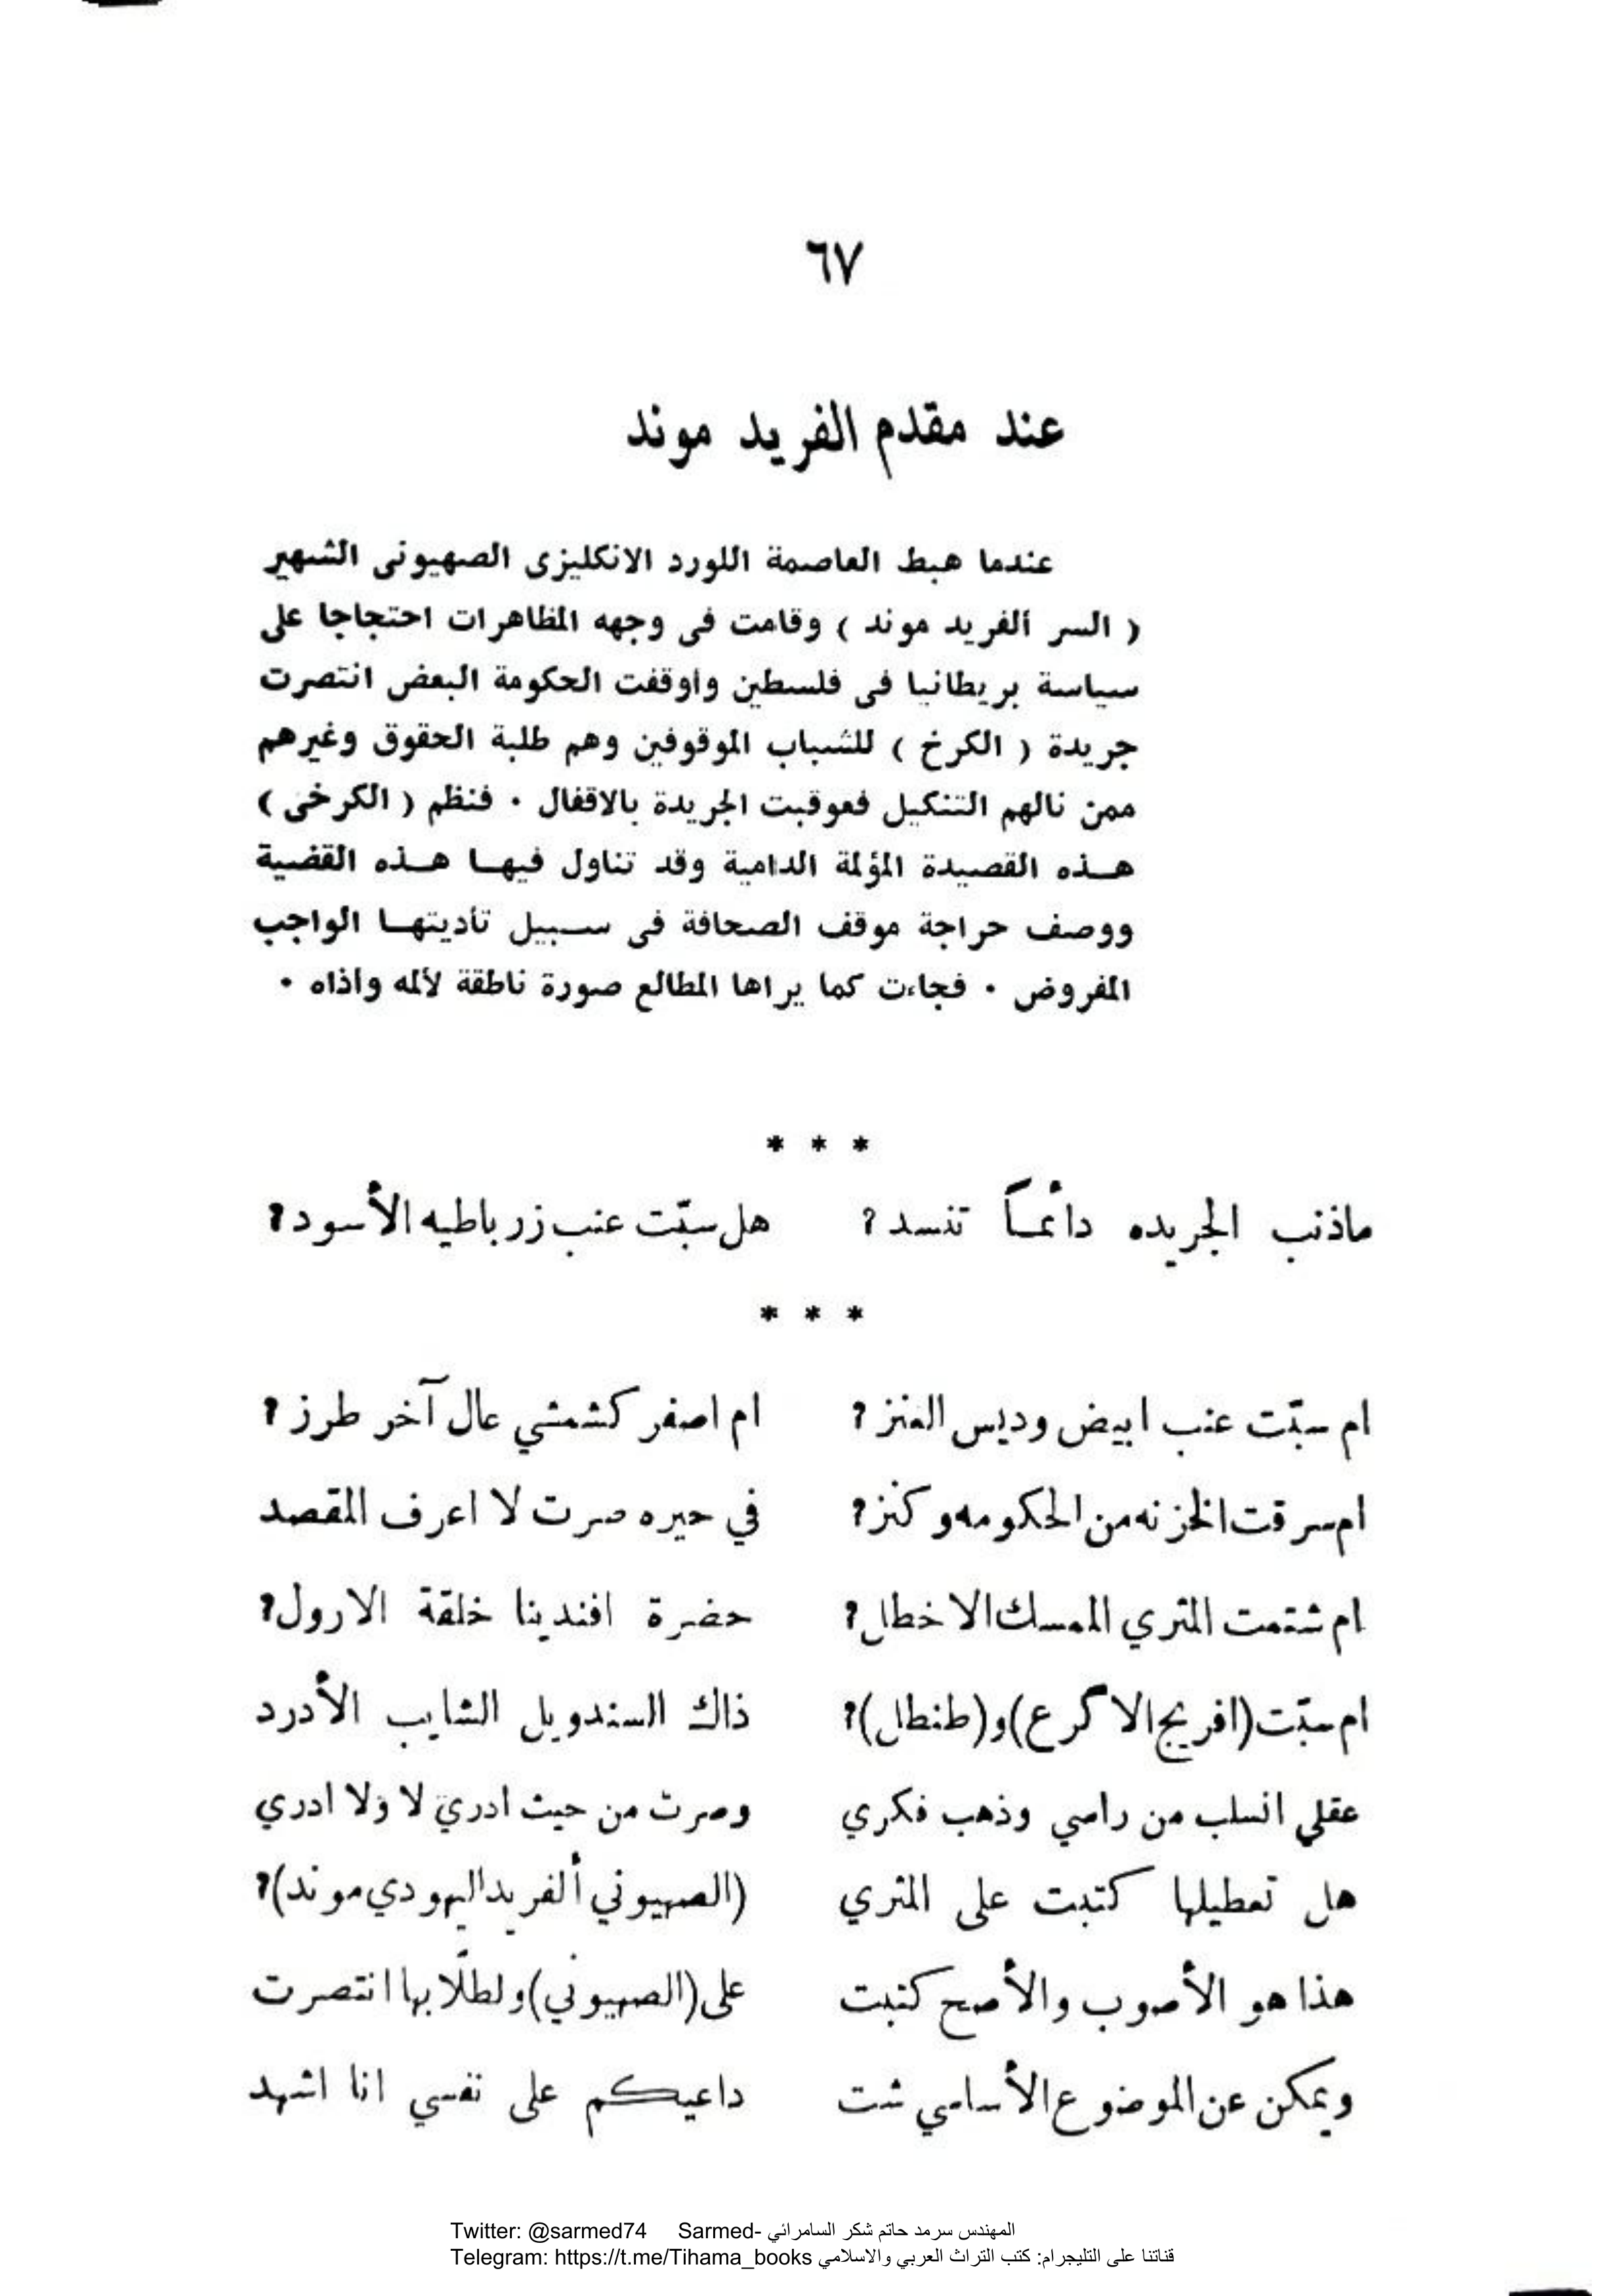 ٦٧
عند مقدم الفريد موند
عندما هبط العاصمة اللورد الانكليزى الصهيونى الشهير
( السر الفريد موند ) وقامت فى وجهه المظاهرات احتجاجا على
سياسة بريطانيا فى فلسطين واوقفت الحكومة البعض انتصرت
جريدة ( الكرخ ) للشباب الموقوفين وهم طلبة الحقوق وغيرهم
ممن نالهم التنكيل فعوقبت الجريدة بالاقفال ٠ فنظم ( الكرخى )
هذه القصيدة المؤلمة الدامية وقد تناول فيها هذه القضية
ووصف حراجة موقف الصحافة فى سبيل تأديتها الواجب
المفروض ٠ فجاءت كما يراها المطالع صورة ناطقة لألمه واذاه ٠
* * *
ماذنب الجريده دائماً تنسد ؟ هل سبّت عنب زرباطيه الأسود ؟
* * *
ام سبّت عنب ابيض وديس العنز ؟ ام اصفر كشمشي عال آخر طرز ؟
ام سرقت الخزنه من الحكومه وكنز ؟ في حيره صرت لا اعرف المقصد
ام شتمت المتري الممسك الاخطل ؟ حضرة افندينا خلقة الارول ؟
ام سبّت (افريج الاكرع) و(طنطل) ؟ ذاك السندويل الشايب الأدرد
عقلي انسلب من راسي وذهب فكري وصرت من حيث ادري لا ولا ادري
هل تعطيلها كتبت على المتري (الصهيوني ألفريد اليهودي موند) ؟
هذا هو الأصوب والأصح كتبت على (الصهيوني) ولطلّابها انتصرت
ويمكن عن الموضوع الأساسي شت داعيكم على نفسي انا اشهد
Twitter: @sarmed74 Sarmed- المهندس سرمد حاتم شكر السامرائي
Telegram: https://t.me/Tihama_books قناتنا على التليجرام: كتب التراث العربي والاسلامي